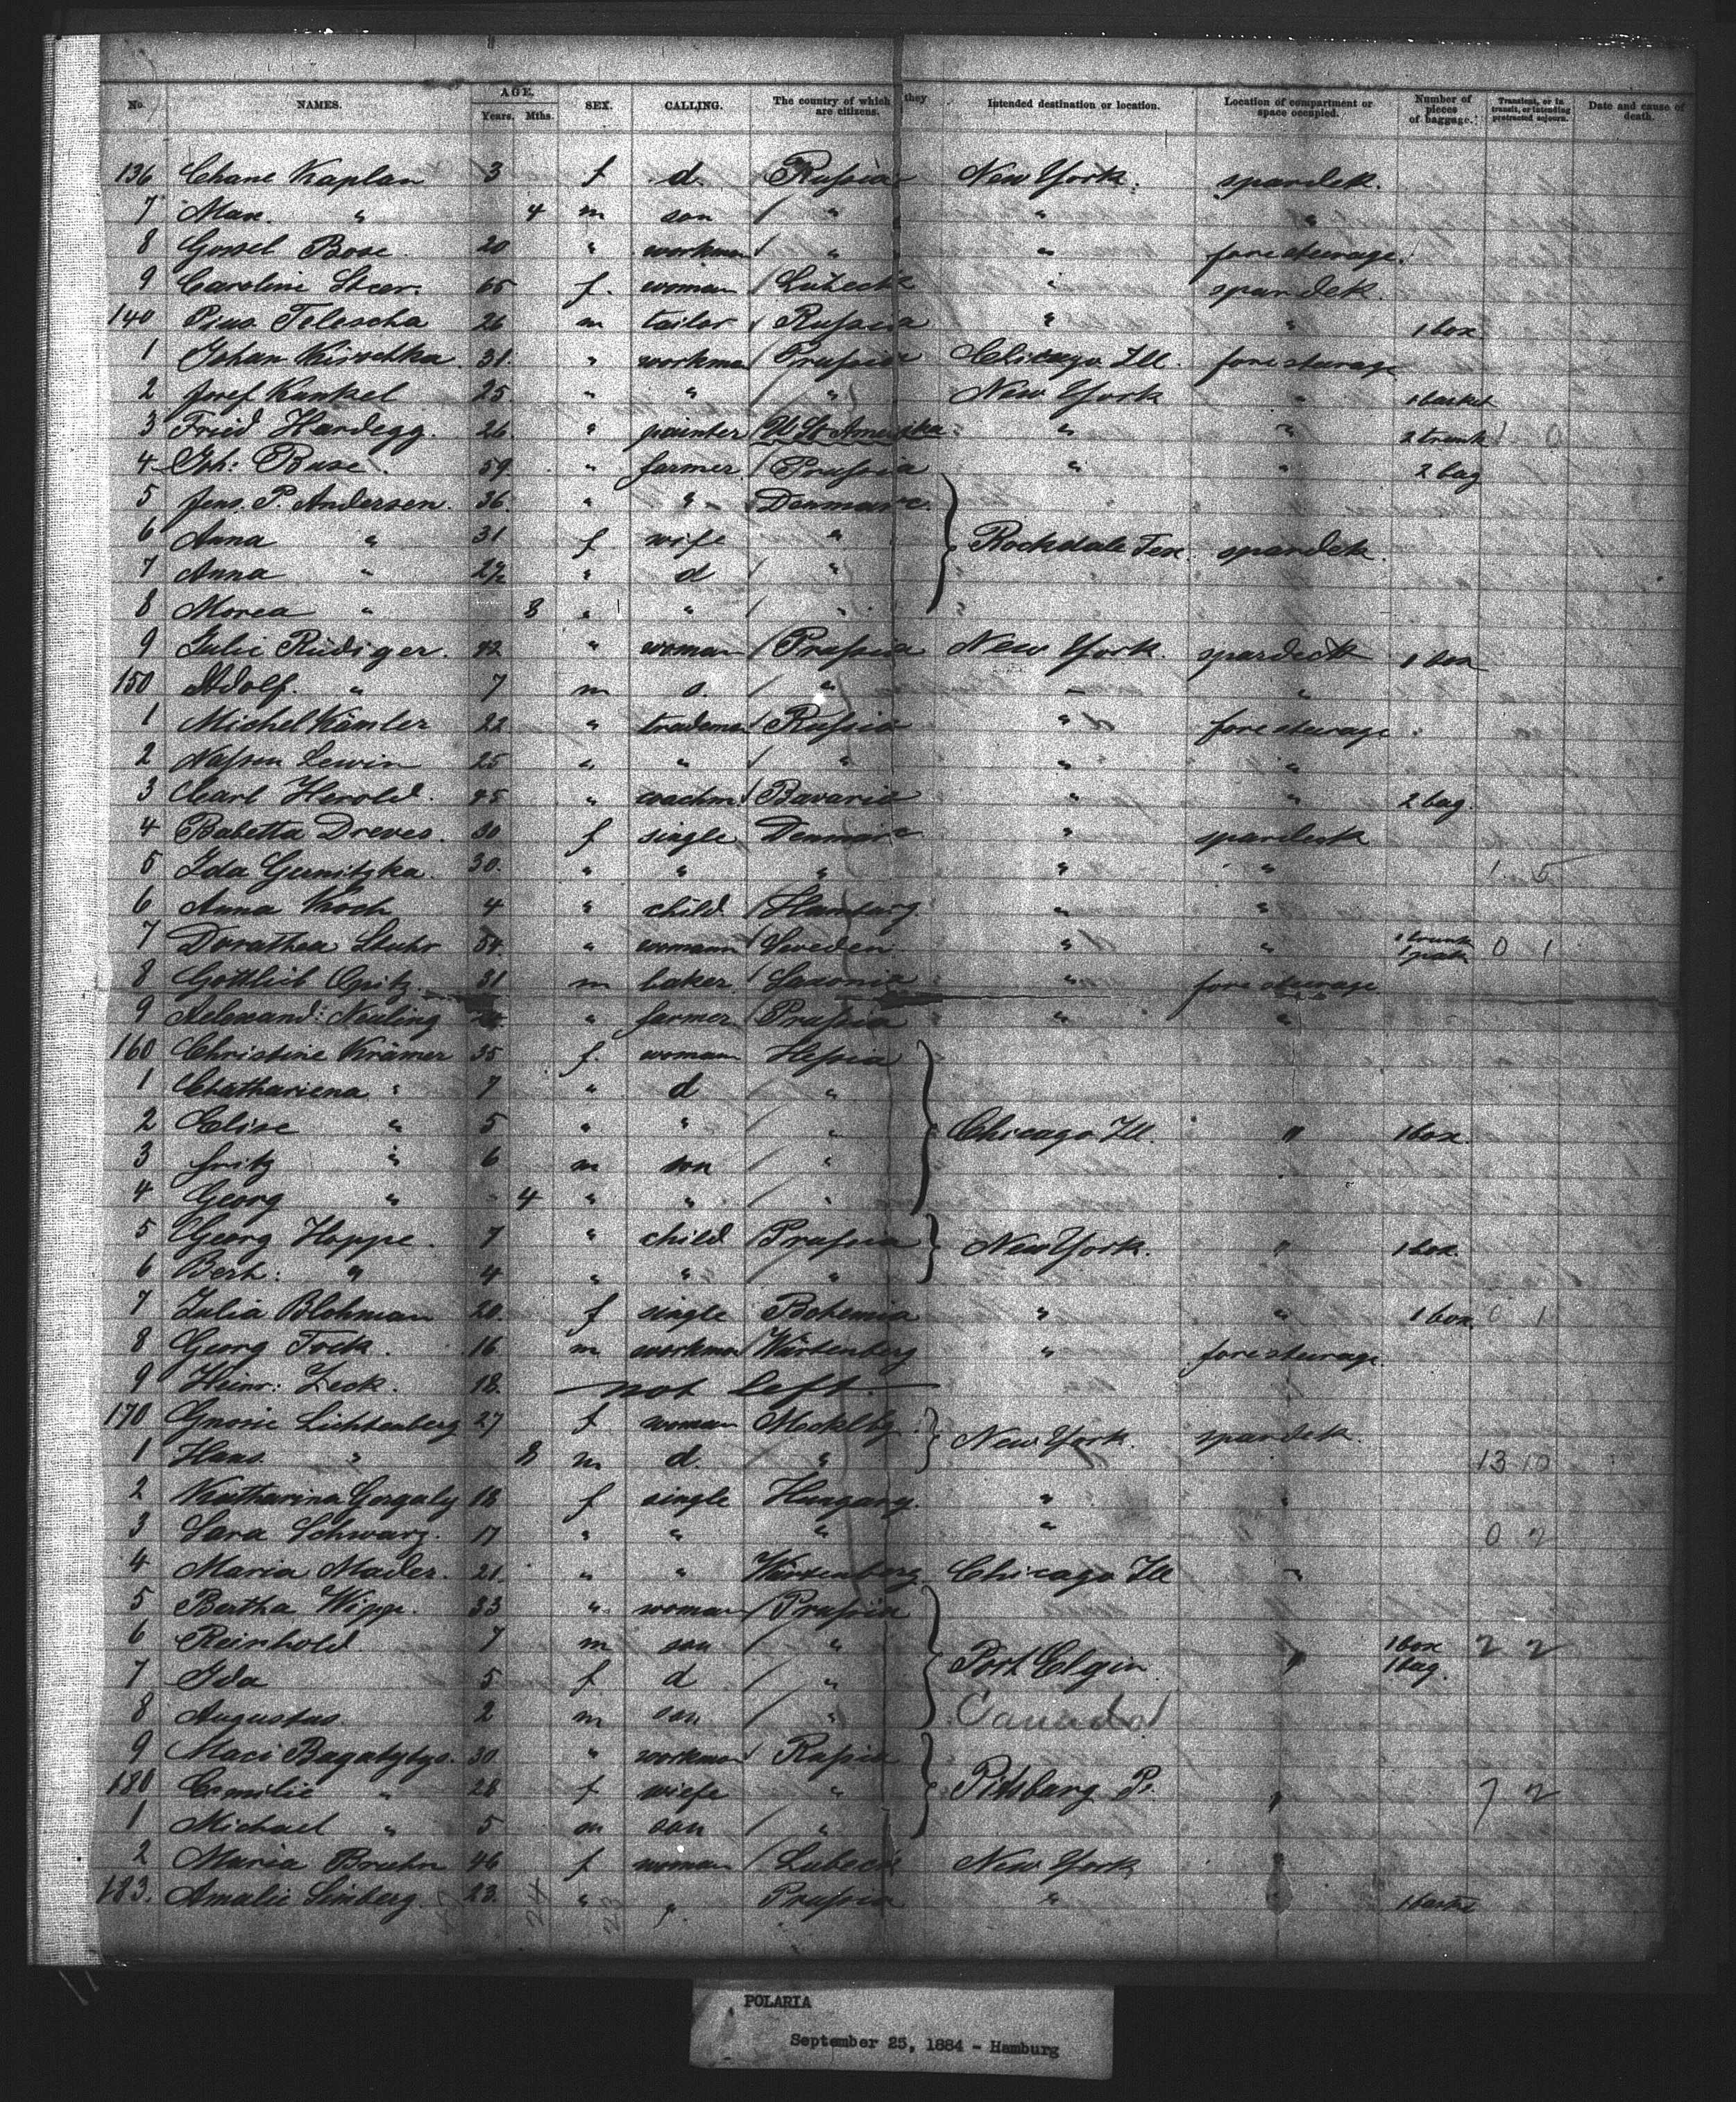 No. NAMES. AGE. Years. Mths. SEX. CALLING. The country of which they are citizens. Intended destination or location. Location of compartment or space occupied. Number of pieces of baggage. Transient, or in transit, or intending protracted sojourn. Date and cause of death.
136 Chane Kaplan 3 f d Russia New York. spardek.
7 Max. " 4 m son " " "
8 Bose 20 " workman " " fore steurage.
9 Caroline 65 f. woman Lübeck " spardek.
140 Pius Telescha 26 m tailor Russia " " 1 box
1 Johan 31. " workman Prussia Chicago Ill. fore steurage
2 Josef Kunkel 25 " " " New York " 1 basket
3 Fried Hardegg. 26. " painter U. St. Amerika " " 2 trunk 1 0
4 Joh: Buse 59 " farmer Prussia " " 2 bag
5 Jens. P. Andersen. 36. " " Denmarc.
6 Anna " 31 f wife " Rockdale Tex. spardek.
7 Anna " " d "
8 Morea " 8 " " "
9 Julie Rüdiger. 42 " woman Prussia New York. spardeck 1 box
150 Adolf. " 7 m s. " " "
1 Michel Kämler 22 " trademan Russia " fore steurage
2 Lewin 25 " " " " "
3 Carl Herold. 45 " coachm. Bavaria " " 2 bag.
4 Babetta Dreves. 30 f single Denmarc " spardeck
5 Ida Gernitzka. 30. " " " " " 1 5
6 Anna Koch 4 " child Hamburg. " "
7 Dorathea Stuhr 54. " womann Sweden " " 1 trunk 0 1
8 Gottlieb Opitz 31 m baker Saxonia " fore steurage
9 Alexand: Neuling " farmer Prussia " "
160 Christine Krämer 35 f. woman Hessia
1 Chathariena " 7 " d "
2 Elise " 5 " " " Chicago Ill. " 1 box.
3 Fritz " 6 m son "
4 Georg " - 4 " " "
5 Georg Hoppe. 7 " child Prussia New York. " 1 box.
6 Berh: " 4 " " "
7 Julia Blohman 20. f single Bohemia " " 1 box 0 1
8 Georg Fock. 16 m workman Würtenberg " fore steurage.
9 Heinr: Zeck. 18. not left.
170 Lichtenberg 27 f woman Mecklbg. New York. spardek.
1 Hans. " 8 m d. " 13 10
2 Katharina Gergaly 18 f single Hungary. " "
3 Sara Schwarz. 17 " " " " 0 2
4 Maria Mader. 21. " " Würtenberg Chicago Ill "
5 Bertha 33 " woman Prussia
6 Reinhold 7 m son " 1 box 2 2
7 Ida 5 f d " Port Elgin " 1 bag.
8 Augustus. 2 m son " Canada
9 Maci 30 " workman Russia
180 Emilie " 28 f wiefe " Pittsburg Pa. " 7 2
1 Michael " 5 m son "
2 Maria Bruhn 46 f woman Lübeck New York "
183. Amalie Simberg. 23. " " Prussia " "
24 23
POLARIA
September 25, 1884 - Hamburg